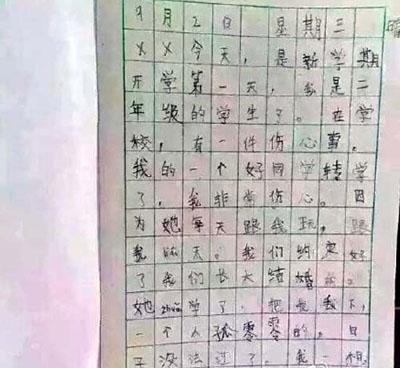 9月2日 星期三
××今天，是新学期
开学第一天，我是二
年级的学生了。在学
校，有一件伤心事，
我的一个好同学转学
了，我非常伤心。因
为她每天跟我玩，跟
我聊天。我们约定好
了我们长大结婚
她zhuan学了，把我丢下，
一个人孤零零的。日
子没法过了。我一想